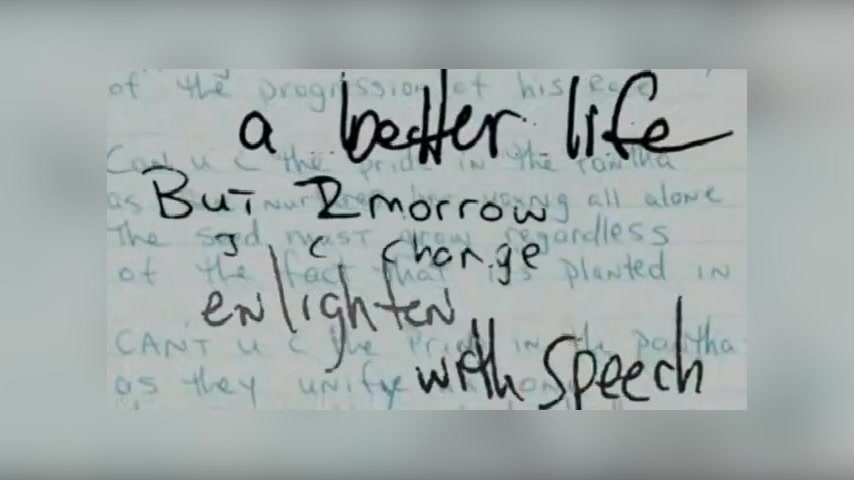 of the progression of his Race
a better life
Cant u c the pride in the pantha
as nurtures her young all alone
But 2morrow
The seed must grow regardless
I c change
of the fact that its planted in
enlighten
CANT u c the Pride in the pantha
as they unify
with Speech